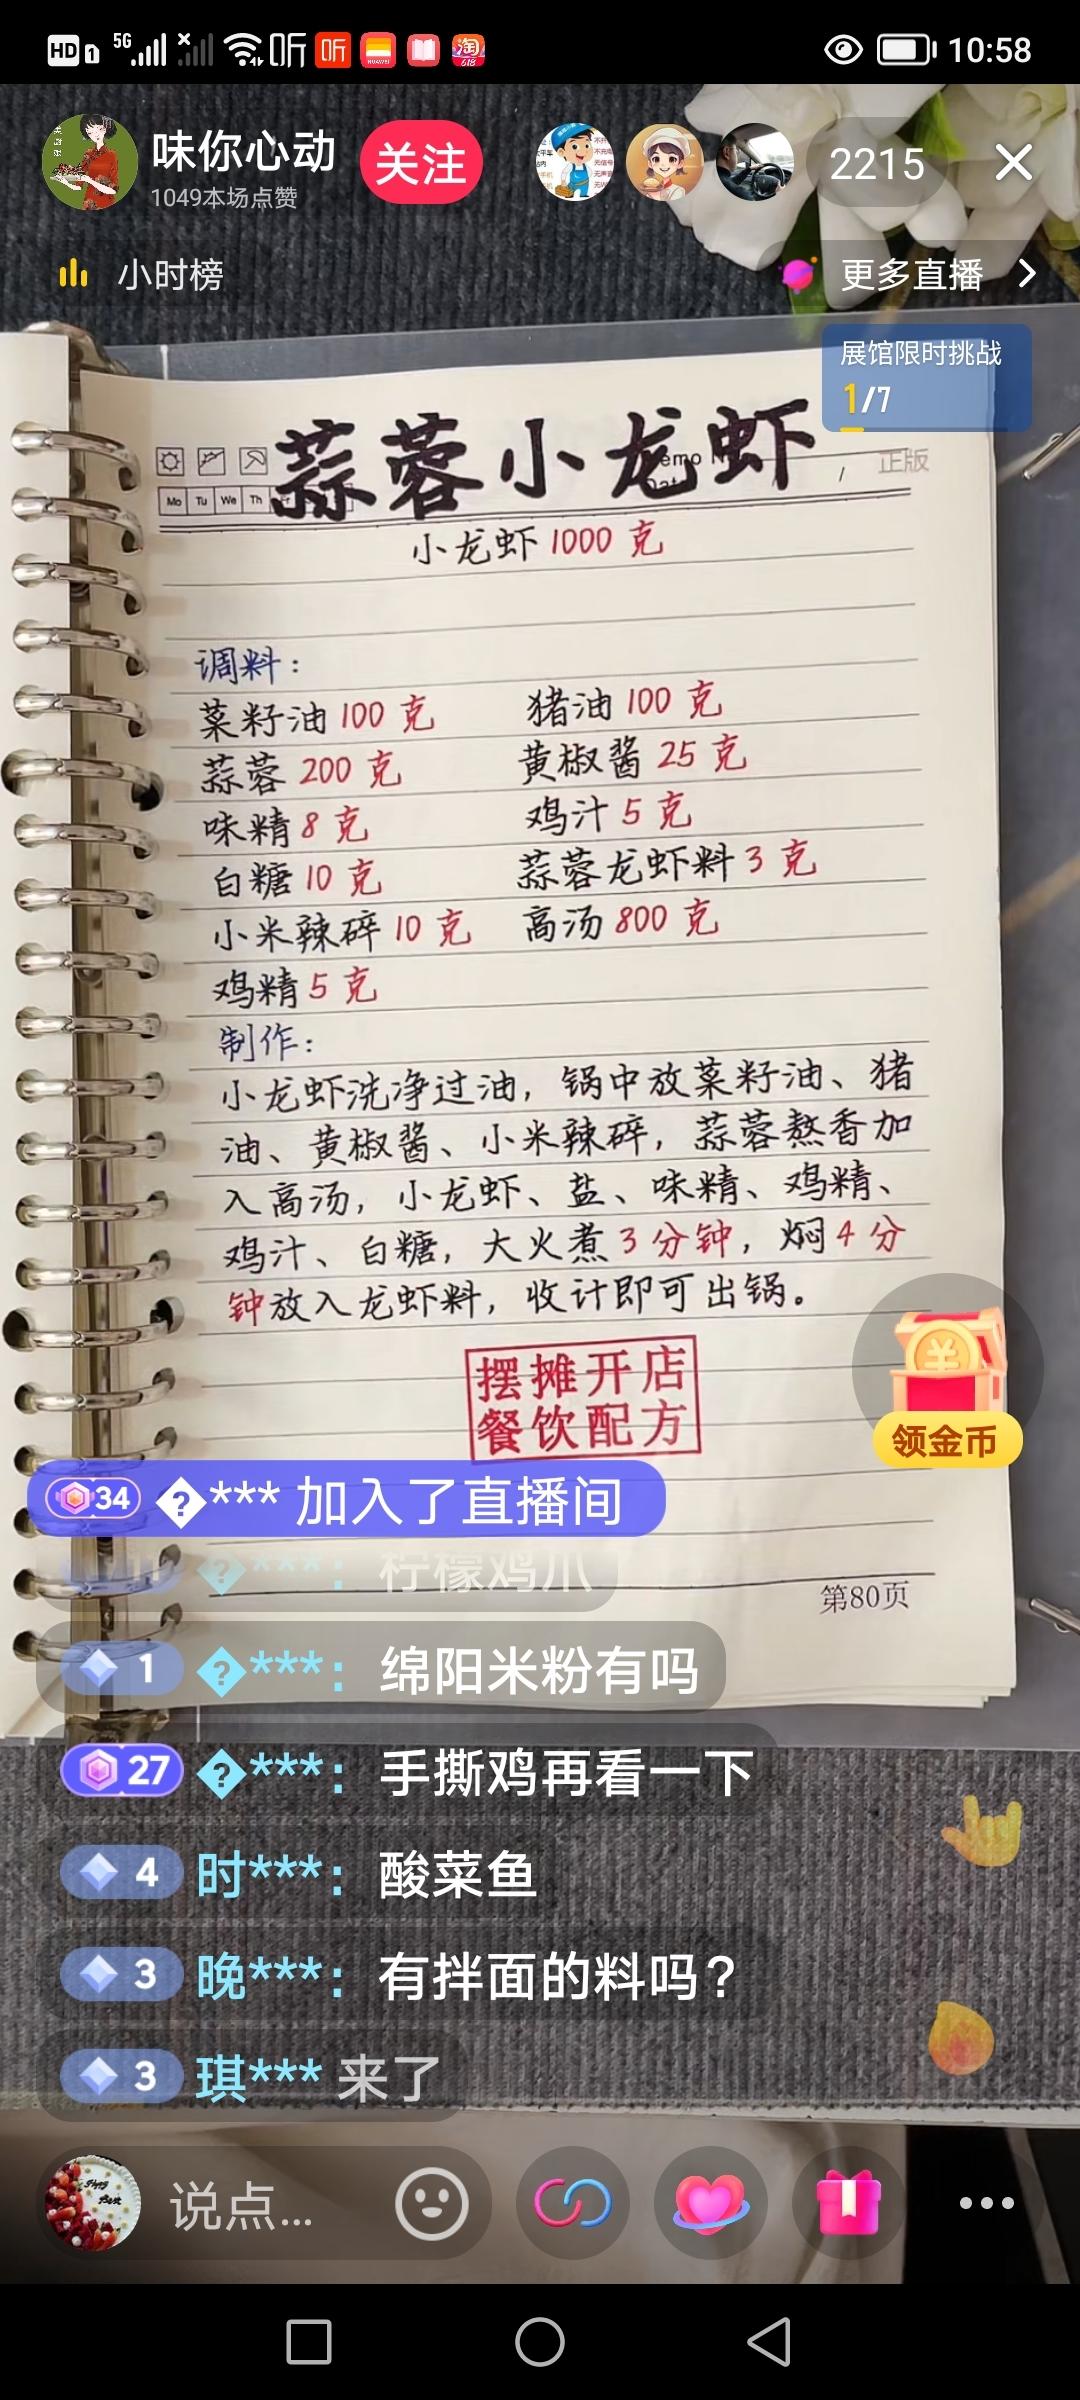 HD 1 5G 听 听 淘 618 10:58
味你心动 关注 2215
1049本场点赞
小时榜 更多直播
展馆限时挑战
1/7
蒜蓉小龙虾
正版
Mo Tu We Th
小龙虾 1000 克
调料：
菜籽油 100 克 猪油 100 克
蒜蓉 200 克 黄椒酱 25 克
味精 8 克 鸡汁 5 克
白糖 10 克 蒜蓉龙虾料 3 克
小米辣碎 10 克 高汤 800 克
鸡精 5 克
制作：
小龙虾洗净过油，锅中放菜籽油、猪
油、黄椒酱、小米辣碎，蒜蓉熬香加
入高汤，小龙虾、盐、味精、鸡精、
鸡汁、白糖，大火煮 3 分钟，焖 4 分
钟放入龙虾料，收计即可出锅。
摆摊开店
餐饮配方
领金币
34 �*** 加入了直播间
�***：柠檬鸡爪
第80页
1 �***：绵阳米粉有吗
27 �***：手撕鸡再看一下
4 时***：酸菜鱼
3 晚***：有拌面的料吗？
3 琪*** 来了
说点...